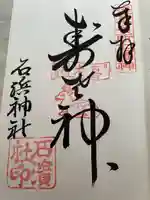 奉拝
寿老神
石浜神社
石濱社印